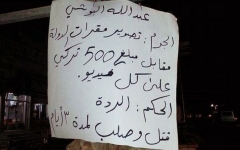 عبد الله البوشي
الجرم: تصوير مقرات الدولة
مقابل مبلغ 500 تركي
على كل فيديو.
الحكم: الردة
قتل وصلب لمدة ٣ أيام